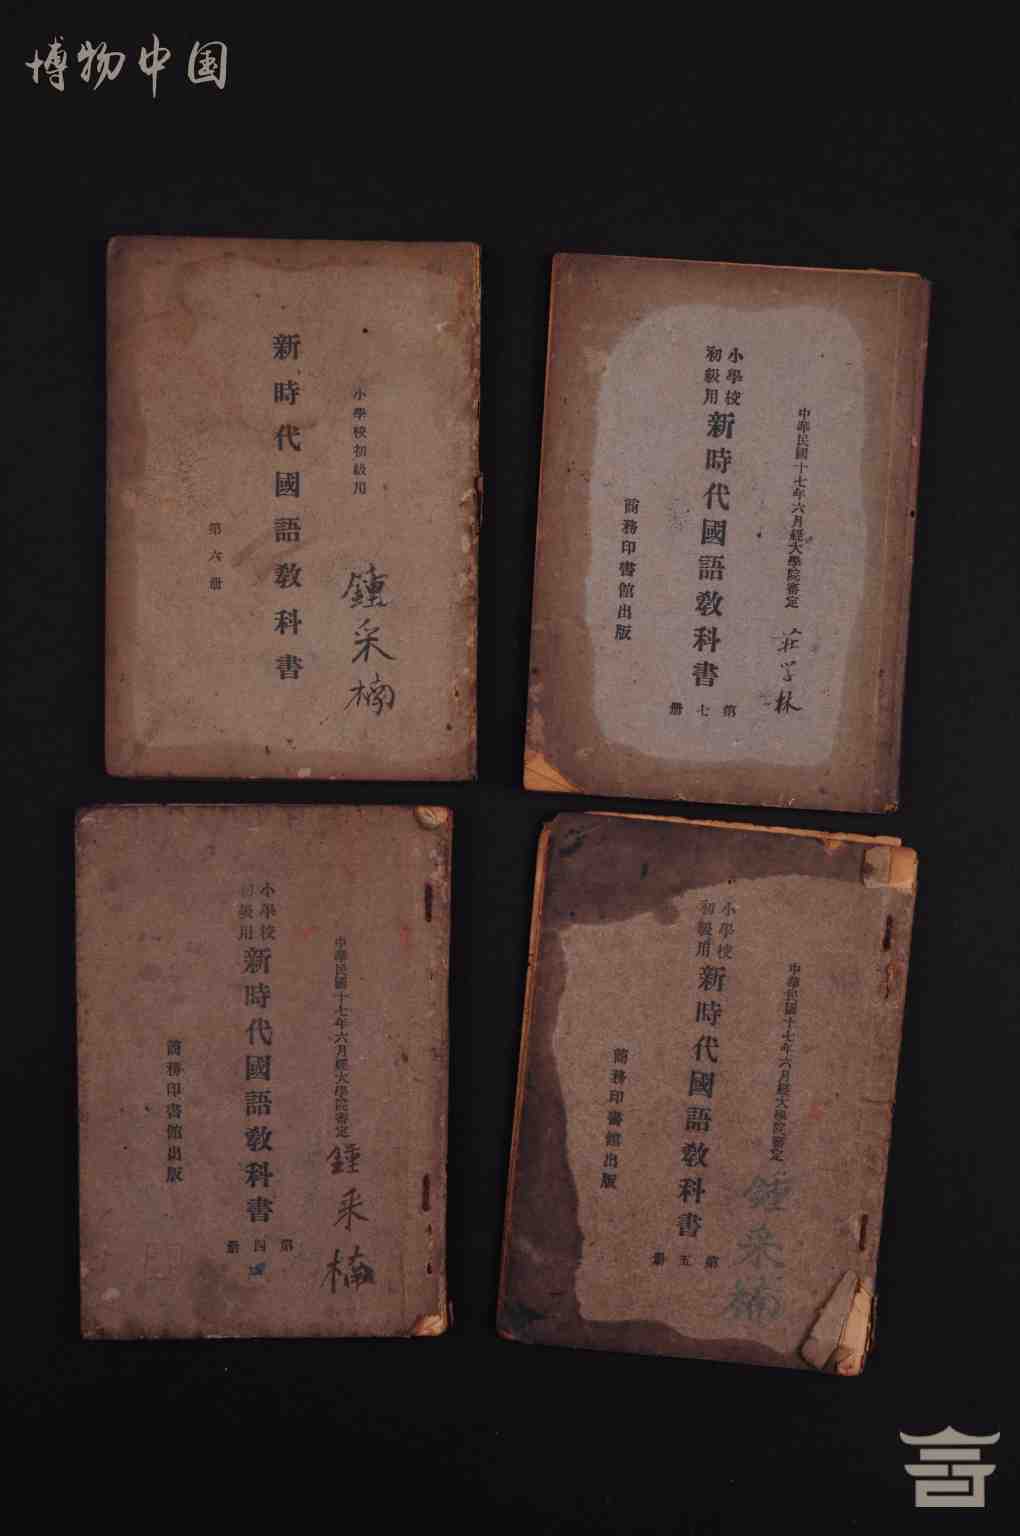 博物中国
小學校初級用
新時代國語教科書
第六册
鍾采楠
中華民國十七年六月經大學院審定
小學校
初級用
新時代國語教科書
第七册
商務印書館出版
莊学林
中華民國十七年六月經大學院審定
小學校
初級用
新時代國語教科書
第四册
商務印書館出版
鍾采楠
中華民國十七年六月經大學院審定
小學校
初級用
新時代國語教科書
第五册
商務印書館出版
鍾采楠